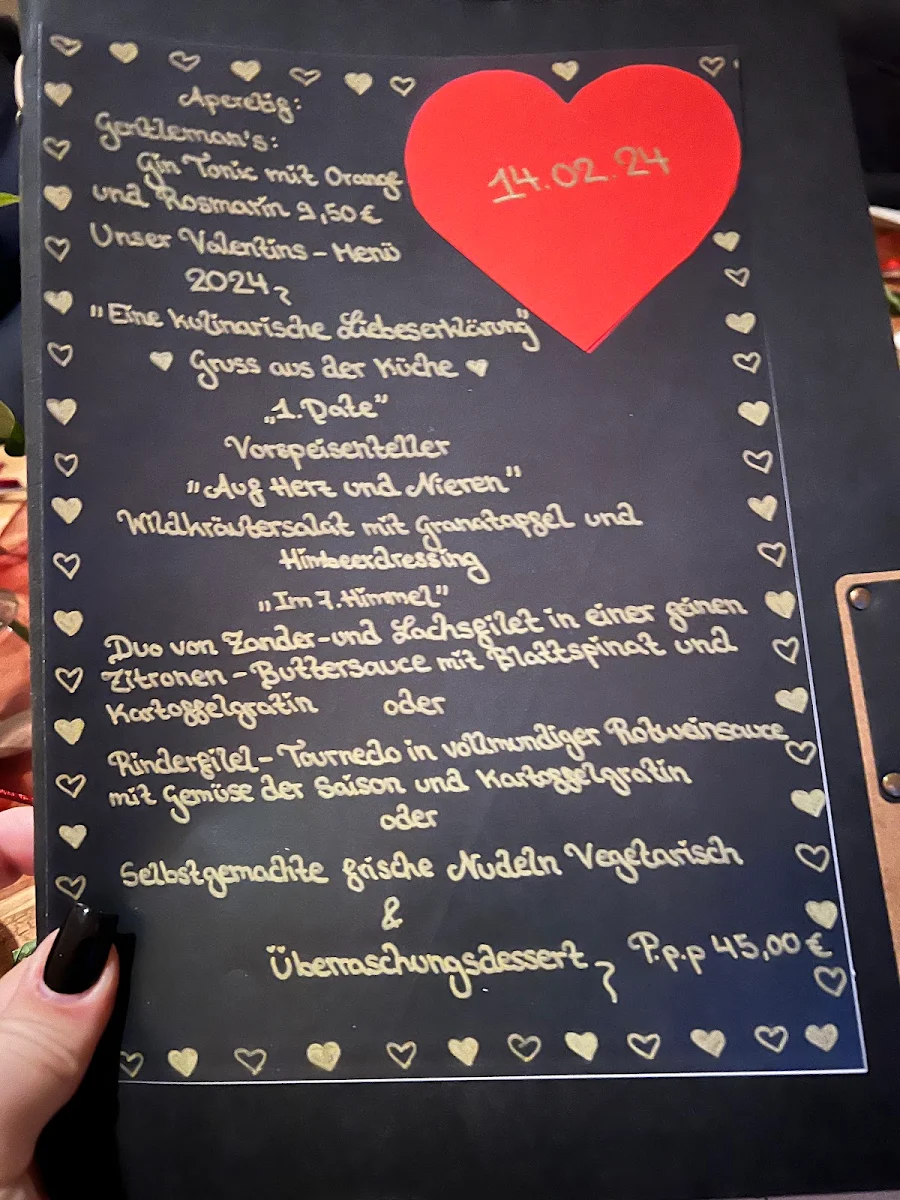 Aperetif:
Gentleman's:
Gin Tonic mit Orange
und Rosmarin 9,50€
14.02.24
Unser Valentins-Menü
2024
"Eine kulinarische Liebeserklärung"
Gruss aus der Küche
„1. Date"
Vorspeisenteller
"Auf Herz und Nieren"
Wildkräutersalat mit Granatapfel und
Himbeerdressing
„Im 7. Himmel"
Duo von Zander-und Lachsfilet in einer feinen
Zitronen-Buttersauce mit Blattspinat und
Kartoffelgratin oder
Rinderfilet-Tournedo in vollmundiger Rotweinsauce
mit Gemüse der Saison und Kartoffelgratin
oder
Selbstgemachte frische Nudeln Vegetarisch
&
Überraschungsdessert P.p.p 45,00€